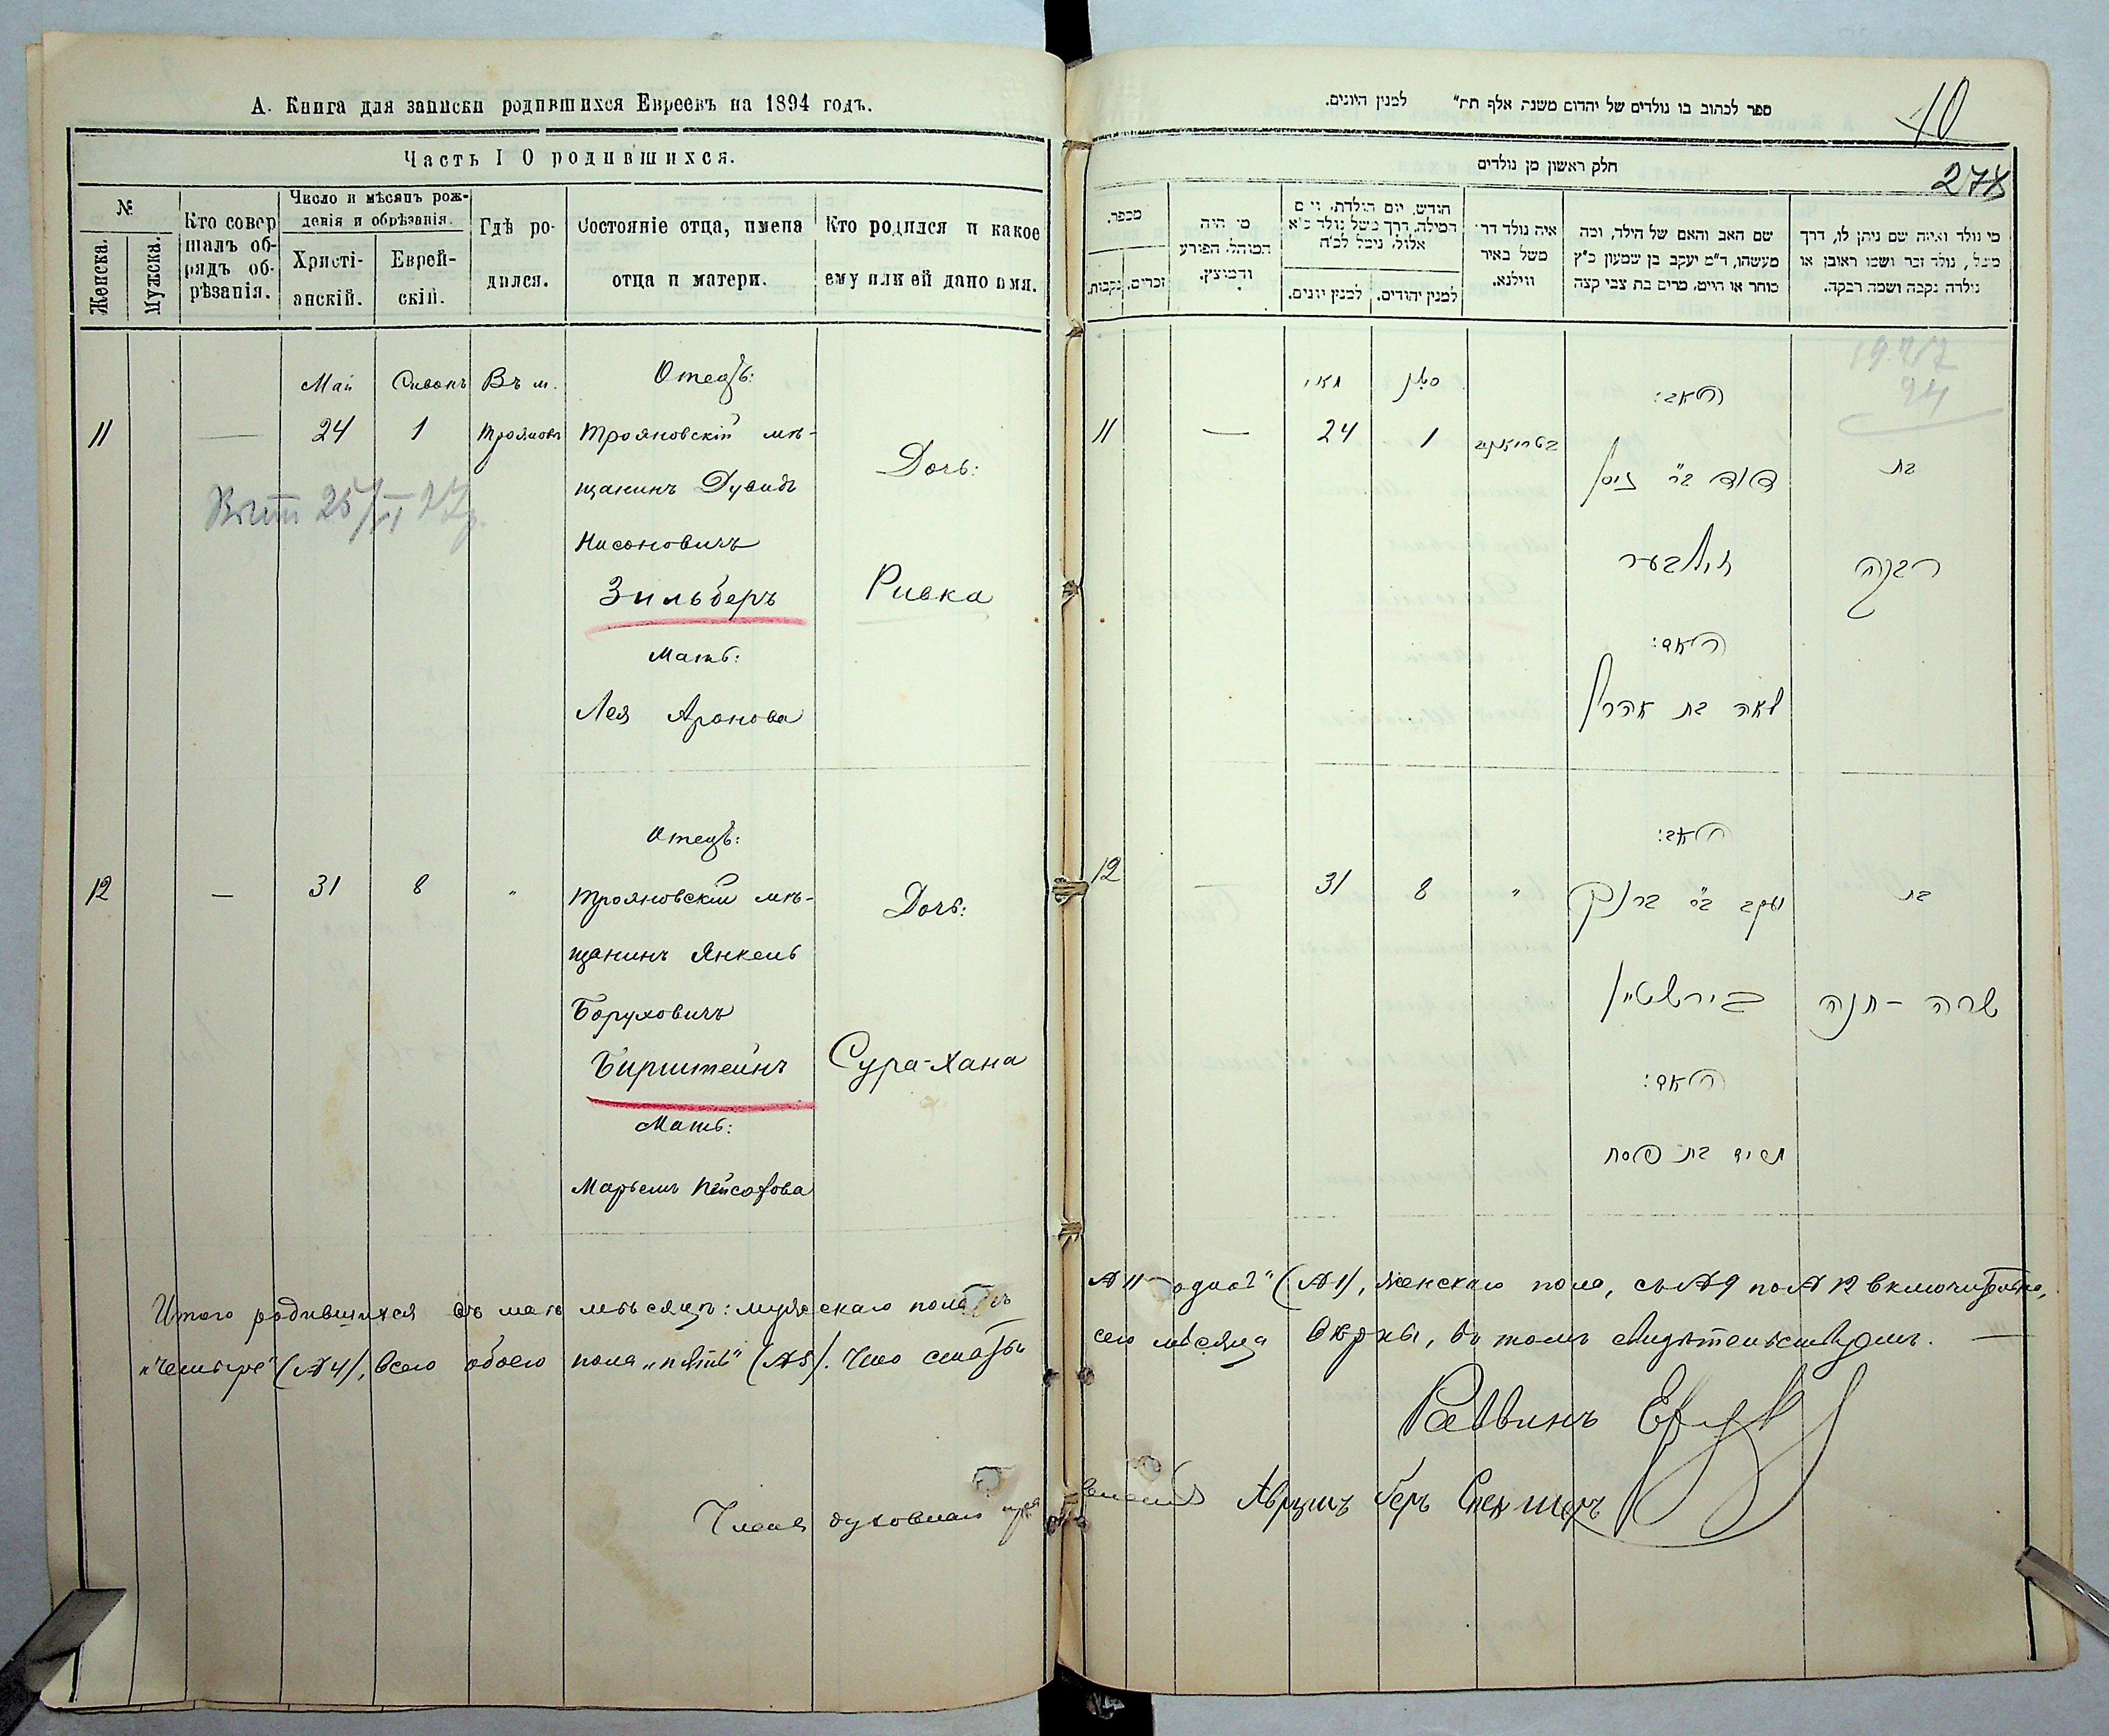 А. Книга для записки родившихся Евреевъ на 1894 годъ.
Часть I О родившихся.
№
Женска.
Мужска.
Кто совер
шалъ об-
рядъ об-
рѣзанія.
Число и мѣсяцъ рож-
денія и обрѣзанія.
Христі-
анскій.
Еврей-
скій.
Гдѣ ро-
дился.
Состояніе отца, имена
отца и матери.
Кто родился и какое
ему или ей дано имя.
Май Сивонъ Въ м. Отецъ:
11 — 24 1 Трояновъ Трояновскій мѣ-
щанинъ Дувидъ
Дочь:
25/
Нисоновичъ
Зильберъ
Ривка
Мать:
Лея Аронова
Отецъ:
12 — 31 8 " Трояновскій мѣ-
Дочь:
щанинъ Янкель
Боруховичъ
Бирштейнъ
Сура-Хана
Мать:
Марьемъ Пейсахова
Итого родившихся въ маѣ мѣсяцѣ: мужескаго пола
"четыре" (№ 4), всего обоего пола "пять" (№ 5). Что статьи
Члена духовнаго
ספר לכתוב בו נולדים של יהדום משנת אלף תת" למנין היונים.
10
חלק ראשון מן נולדים
278
מספר.
נקבות.
זכרים.
מי היה
המוהל, הפורע
והמוצץ.
חודש, יום הולדת, ויום
המילה, דרך משל נולד כ"א
אלול, נימל לכ"ח
למנין יונים.
למנין יהודים.
איה נולד דרך
משל באיר
ווילנא.
שם האב והאם של הילד, ומה
מעשהו, ד"מ יעקב בן שמעון כ"ץ
סוחר או חייט, מרים בת צבי קצה
מי נולד ואיזה שם ניתן לו, דרך
משל, נולד זכר ושמו ראובן או
נולדה נקבה ושמה רבקה.
94
מאי סיון
האב:
11 — 24 1
דוד בר' ניסן
בת
זילבער
רבקה
האם:
לאה בת אהרן
האב:
12 — 31 8 "
יעקב בר' ברוך
בת
בירשטיין
שרה - חנה
האם:
מרים בת פסח
№ 11 "одно" (№ 1), женскаго пола, съ № 9 по № 12 включительно,
сего мѣсяца вѣрны, въ томъ свидѣтельствуемъ. —
Раввинъ
Аврумъ Беръ